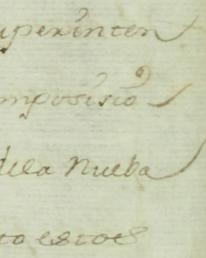 uperinten
mposisio
dela Nueba
to estos